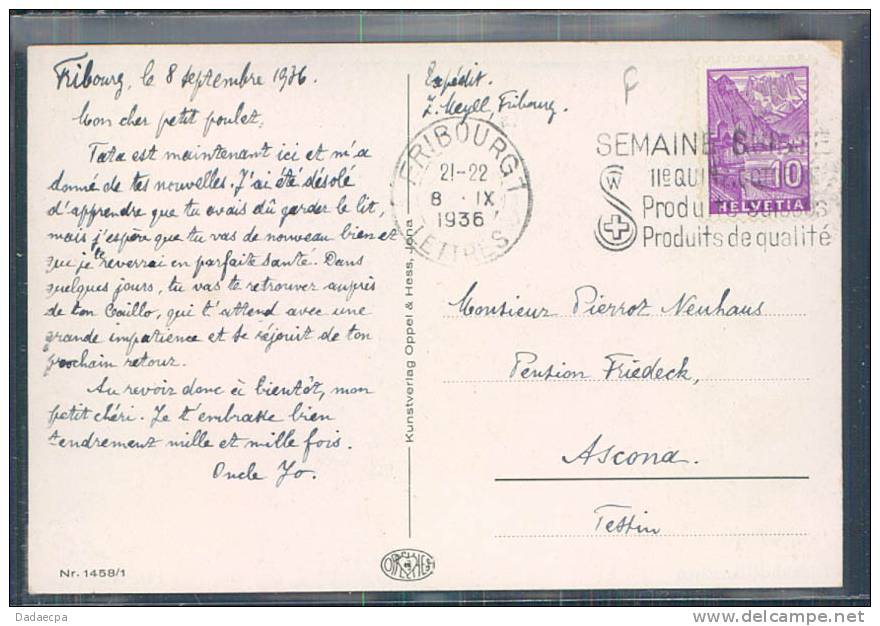 Fribourg, le 8 septembre 1936.
Mon cher petit poulet,
Tata est maintenant ici et m'a
donné de tes nouvelles. J'ai été désolé
d'apprendre que tu avais dû garder le lit,
mais j'espère que tu vas de nouveau bien et
que je te reverrai en parfaite santé. Dans
quelques jours, tu vas te retrouver auprès
de ton, qui t'attend avec une
grande impatience et se réjouit de ton
prochain retour.
Au revoir donc à bientôt, mon
petit chéri. Je t'embrasse bien
tendrement mille et mille fois.
Oncle Jo.
Nr. 1458/1
Kunstverlag Oppel & Hess, Jena
Expédit.
Fribourg.
F
FRIBOURG 1
21-22
8. IX
1936
LETTRES
SEMAINE
IIe
W
Produits
Produits de qualité
10
HELVETIA
Monsieur Pierrot Neuhaus
Pension Friedeck,
Ascona.
Tessin
Dadaecpa